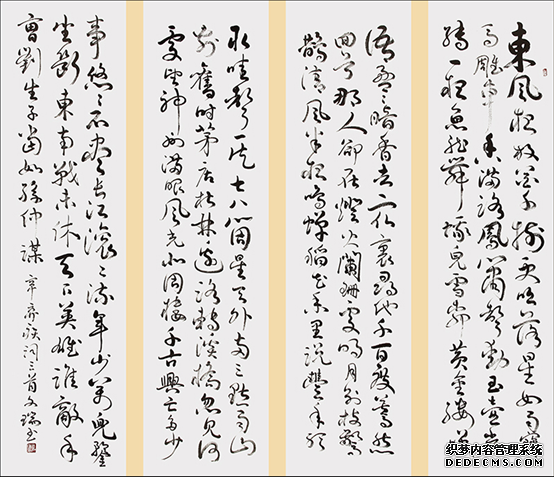 東風夜放花千樹更吹落星如雨寶
馬雕車香滿路鳳簫聲動玉壺光
轉一夜魚龍舞蛾兒雪柳黃金縷笑
語盈盈暗香去眾裏尋他千百度驀然
回首那人卻在燈火闌珊處明月別枝驚
鵲清風半夜鳴蟬稻花香里說豐年聽
取蛙聲一片七八個星天外兩三點雨山
前舊時茅店社林邊路轉溪橋忽見何
處望神州滿眼風光北固樓千古興亡多少
事悠悠不盡長江滾滾流年少萬兜鍪
坐斷東南戰未休天下英雄誰敵手
曹劉生子當如孫仲謀 辛棄疾詞三首文瑞書
织梦内容管理系统
DEDECMS.COM